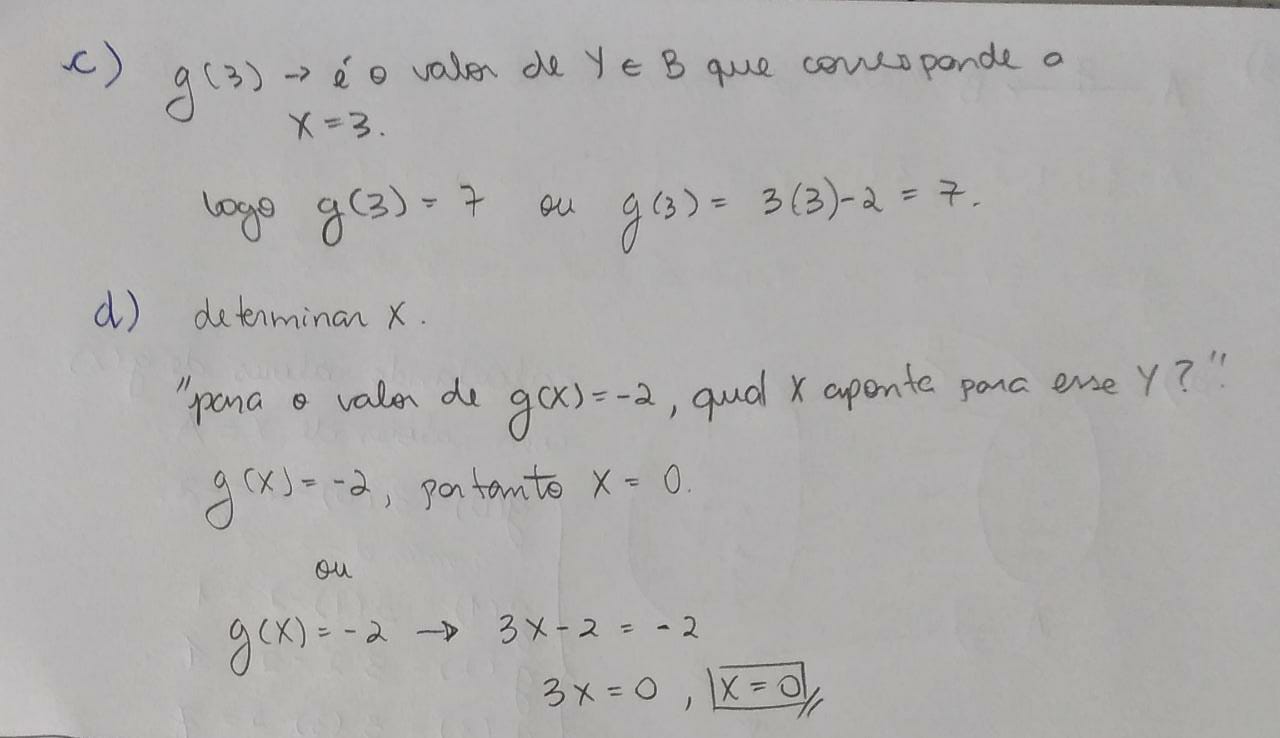 c) g(3) → é o valor de Y ∈ B que corresponde a
X = 3.
logo g(3) = 7 ou g(3) = 3(3)-2 = 7.
d) determinar X.
"para o valor de g(x) = -2, qual X aponta para esse Y?".
g(x) = -2, portanto X = 0.
ou
g(x) = -2 → 3X - 2 = -2
3X = 0, X = 0//